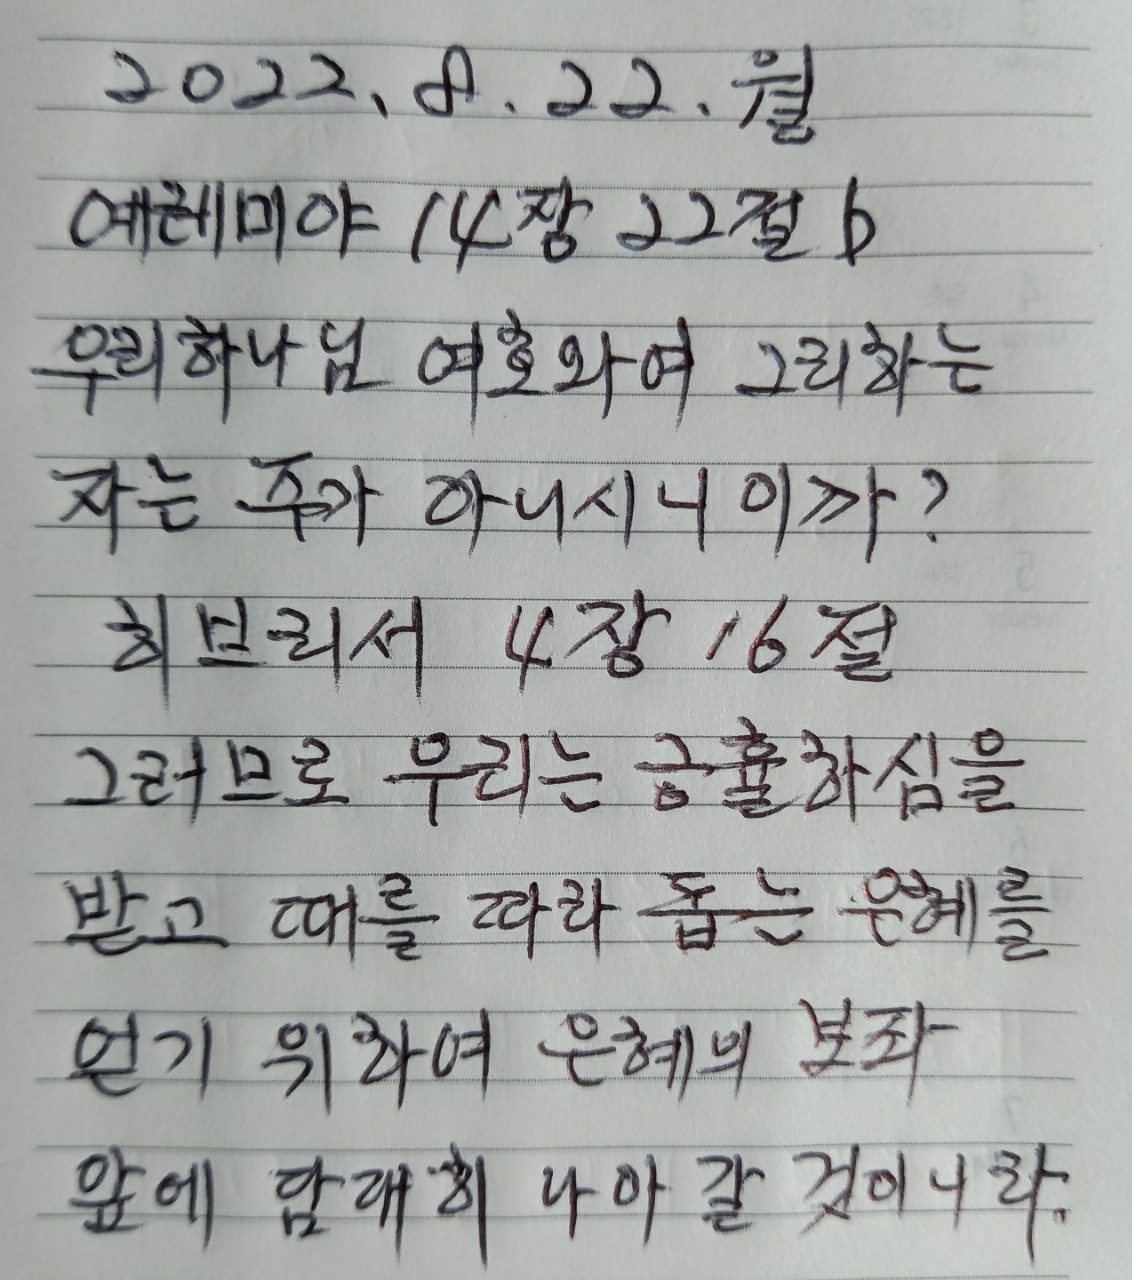 2022. 8. 22. 월
예레미야 14장 22절 b
우리하나님 여호와여 그리하는
자는 주가 아니시니이까?
히브리서 4장 16절
그러므로 우리는 긍휼하심을
받고 때를 따라 돕는 은혜를
얻기 위하여 은혜의 보좌
앞에 담대히 나아갈 것이니라.